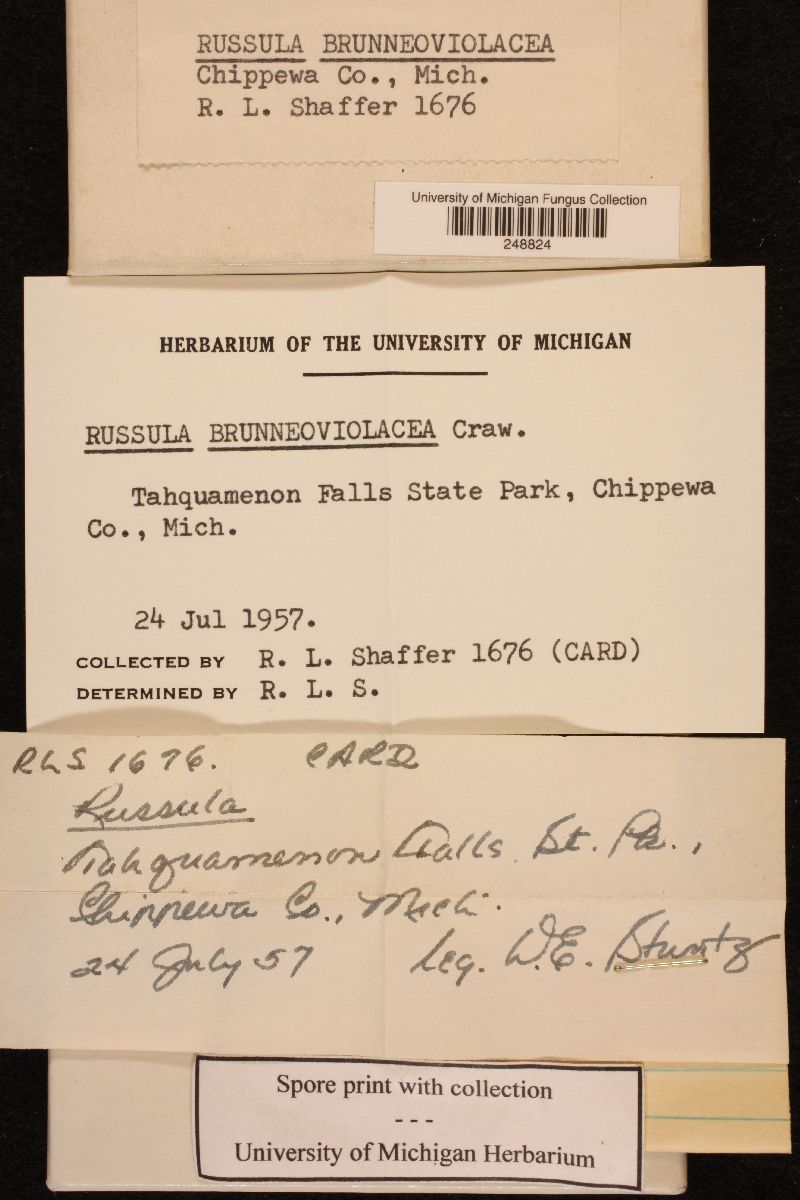 RUSSULA BRUNNEOVIOLACEA
Chippewa Co., Mich.
R. L. Shaffer 1676
University of Michigan Fungus Collection
248824
HERBARIUM OF THE UNIVERSITY OF MICHIGAN
RUSSULA BRUNNEOVIOLACEA Craw.
Tahquamenon Falls State Park, Chippewa
Co., Mich.
24 Jul 1957.
COLLECTED BY R. L. Shaffer 1676 (CARD)
DETERMINED BY R. L. S.
RLS 1676. CARD
Russula
Tahquamenon Falls St. Pk.,
Chippewa Co., Mich.
24 July 57 leg. D.E. Stuntz
Spore print with collection
- - -
University of Michigan Herbarium